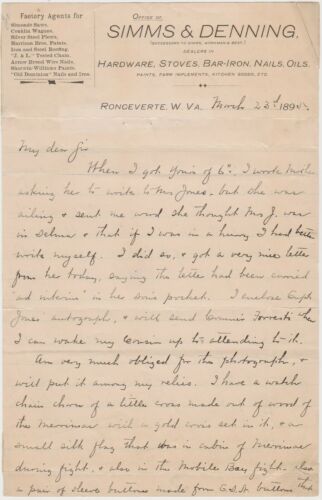 Factory Agents for
Simonds Saws,
Conklin Wagons,
Silver Steel Plows,
Harrison Bros. Paints,
Iron and Steel Roofing,
"J. & L." Tested Chain,
Arrow Brand Wire Nails,
Sherwin-Williams Paints,
"Old Dominion" Nails and Iron.
OFFICE OF
SIMMS & DENNING,
(SUCCESSORS TO SIMMS, & BEST,)
DEALERS IN
HARDWARE, STOVES, BAR-IRON, NAILS, OILS,
PAINTS, FARM IMPLEMENTS, KITCHEN GOODS, ETC.
RONCEVERTE, W. VA. March 22d 189
My dear Sir
When I got yours of 6th, I wrote
asking her to write to Mrs Jones, but she was
ailing & sent me word she thought Mrs J. was
in Selma & that if I was in a hurry I had better
write myself. I did so, & got a very nice letter
from her today, saying the letter had been carried
"ad interim" in her sons pocket. I enclose Capt
Jones' autograph, & will send Forrests when
I can wake my Cousin up to attending to it.
Am very much obliged for the photograph, &
will put it among my relics. I have a watch
chain charm of a little cross made out of wood of
the Merrimac with a gold cross set in it, & a
small silk flag that was in cabin of Merrimac
during fight, & also in the Mobile Bay fight. also
a pair of sleeve buttons made from C.S.A. buttons that